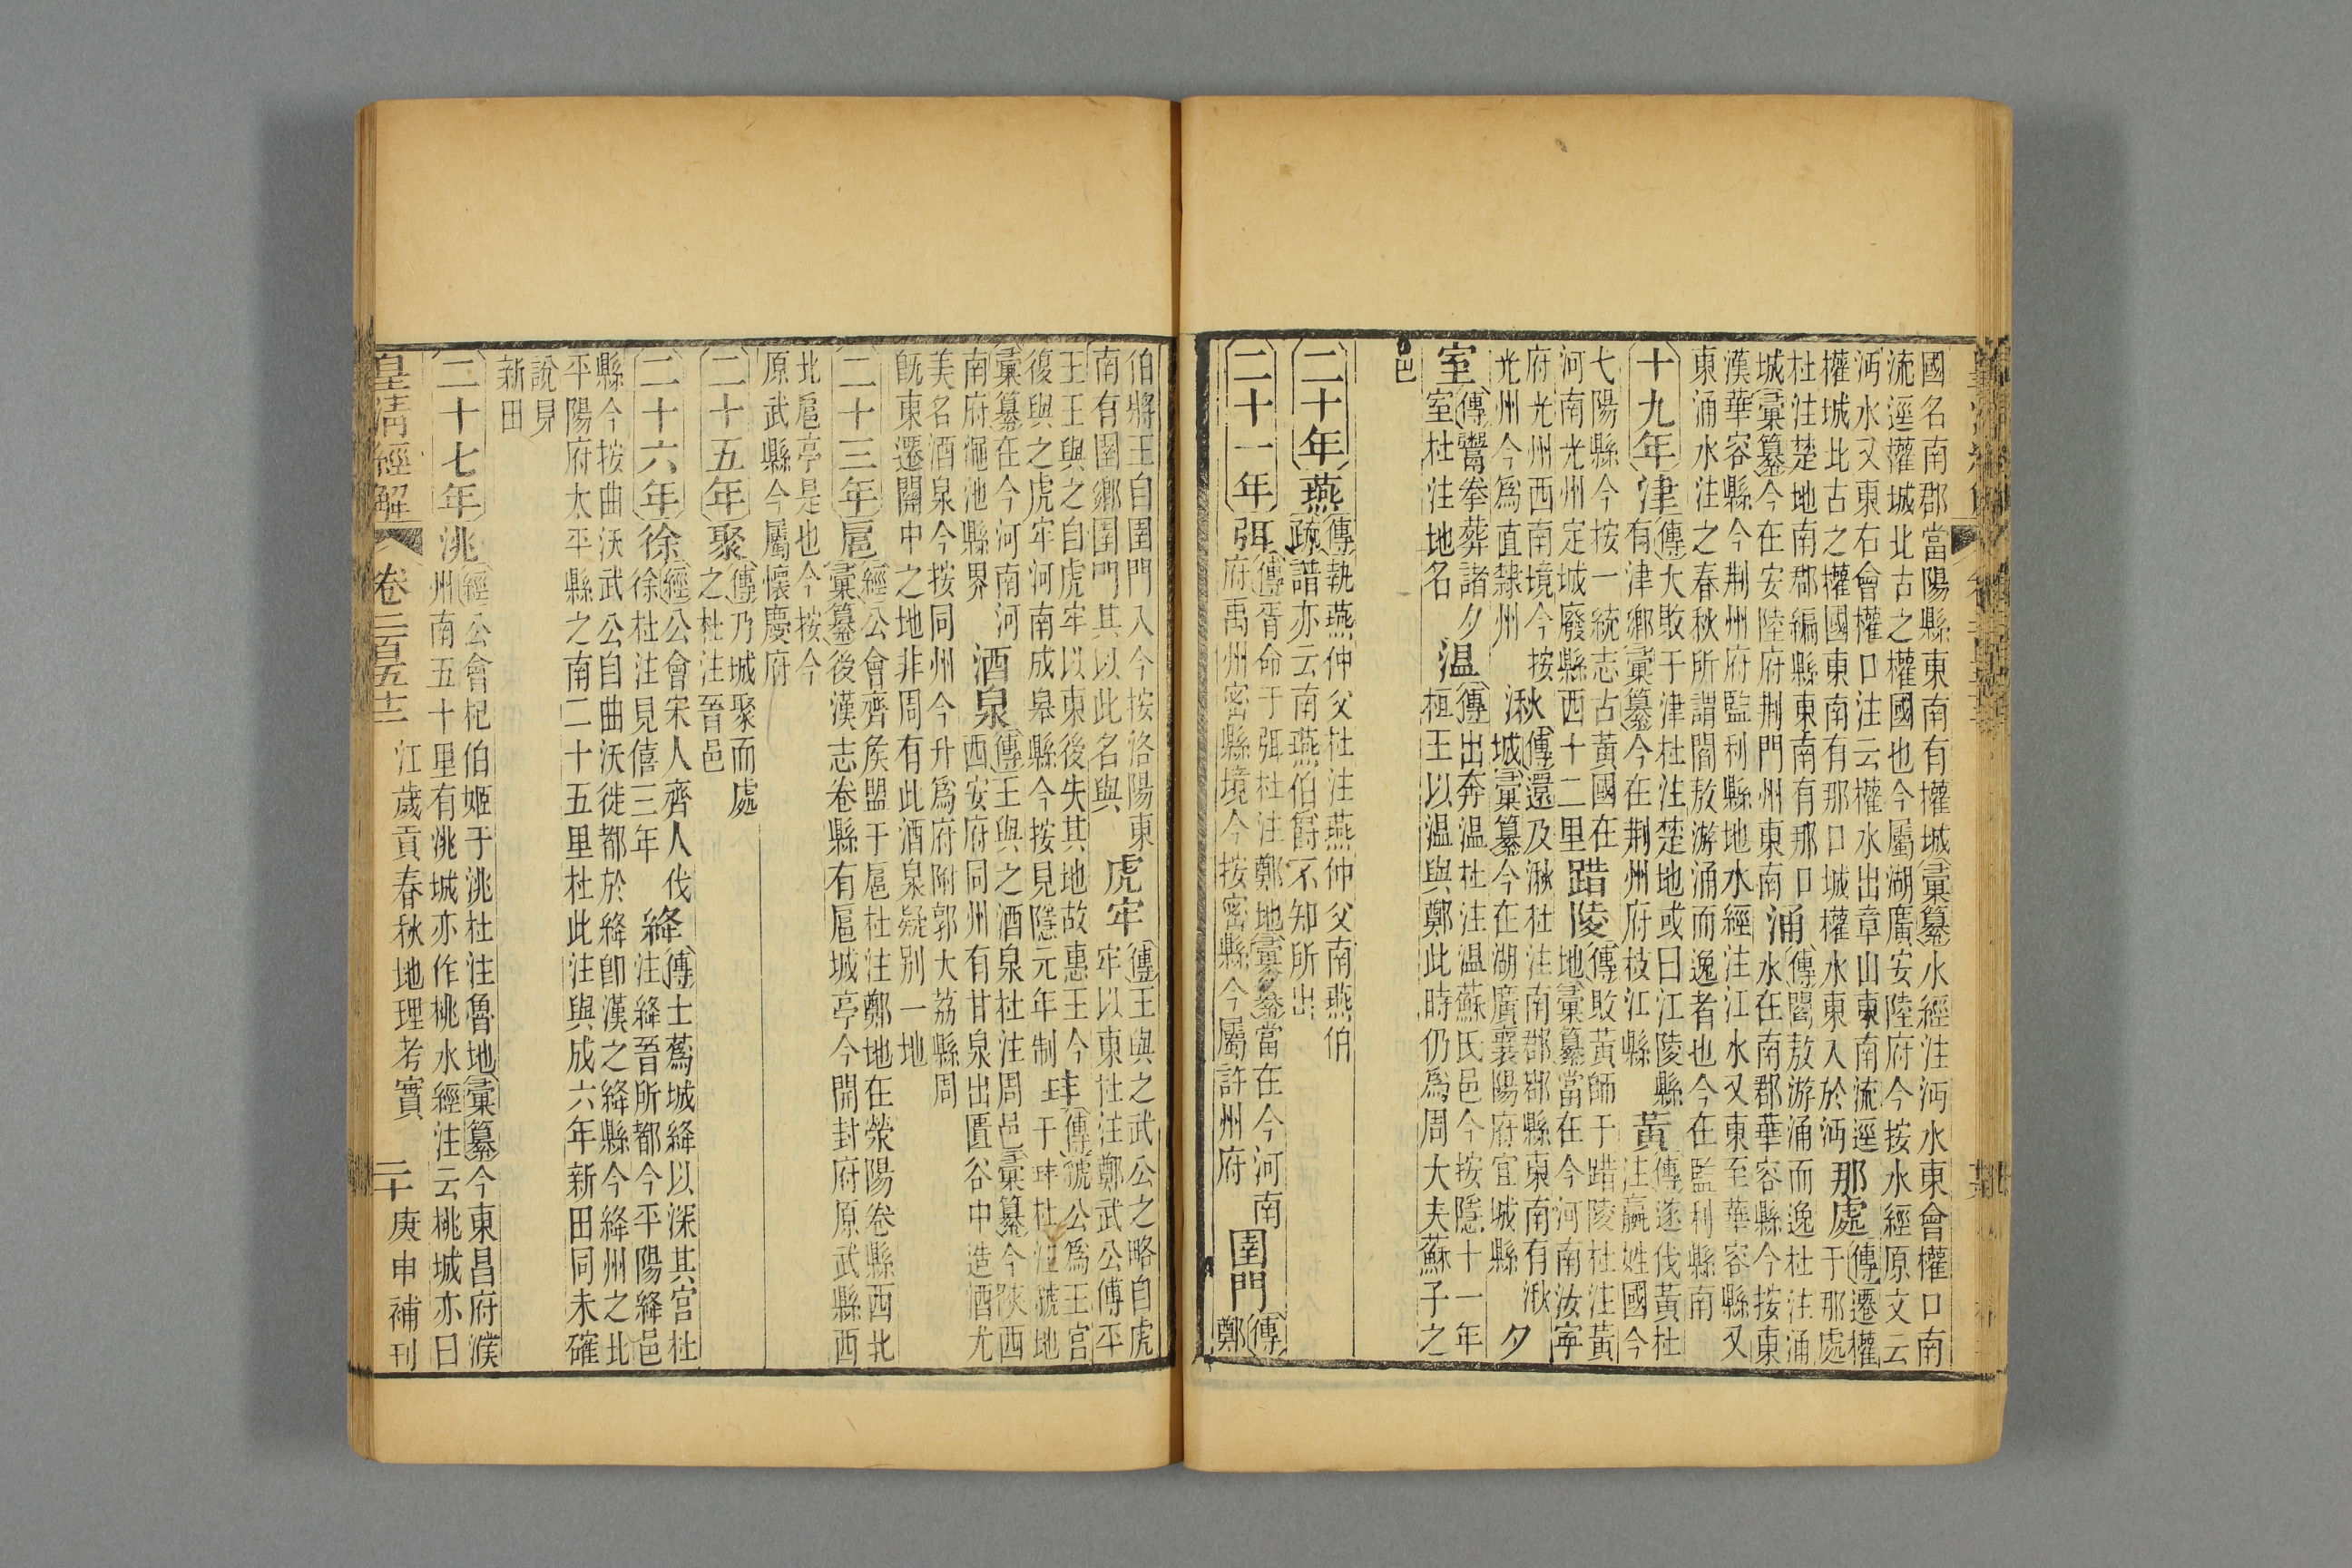 國名南郡當陽縣東南有權城彙纂水經注沔水東會權口南
流逕權城北古之權國也今屬湖廣安陸府今按水經原文云
沔水又東右會權口注云權水出章山東南流逕
權城北古之權國東南有那口城權水東入於沔
那處
傳遷權
于那處
杜注楚地南郡編縣東南有那口
城彙纂今在安陸府荆門州東南
涌
傳閻敖游涌而逸杜注涌
水在南郡華容縣今按東
漢華容縣今荆州府監利縣地水經注江水又東至華容縣又
東涌水注之春秋所謂閻敖游涌而逸者也今在監利縣南
十九年津
傳大敗于津杜注楚地或曰江陵縣
有津鄉彙纂今在荆州府枝江縣
黃
傳遂伐黃杜
注嬴姓國今
弋陽縣今按一統志古黃國在
河南光州定城廢縣西十二里
踖陵
傳敗黃師于踖陵杜注黃
地彙纂當在今河南汝寧
府光州西南境今按
光州今爲直隸州
湫
傳還及湫杜注南郡鄀縣東南有湫
城彙纂今在湖廣襄陽府宜城縣
夕
室
傳鬻拳葬諸夕
室杜注地名
温
傳出奔温杜注温蘇氏邑今按隱十一年
桓王以温與鄭此時仍爲周大夫蘇子之
邑
二十年燕
傳執燕仲父杜注燕仲父南燕伯
疏譜亦云南燕伯爵不知所出
二十一年弭
傳胥命于弭杜注鄭地彙纂當在今河南
府禹州密縣境今按密縣今屬許州府
圉門
傳
鄭
伯將王自圉門入今按洛陽東
南有圉鄉圉門其以此名與
虎牢
傳王與之武公之略自虎
牢以東杜注鄭武公傅平
王王與之自虎牢以東後失其地故惠王今
復與之虎牢河南成皋縣今按見隱元年制
玤
傳虢公爲王宮
于玤杜注虢地
彙纂在今河南河
南府澠池縣界
酒泉
傳王與之酒泉杜注周邑彙纂今陝西
西安府同州有甘泉出匱谷中造酒尤
美名酒泉今按同州今升爲府附郭大荔縣周
旣東遷關中之地非周有此酒泉疑別一地
二十三年扈
經公會齊侯盟于扈杜注鄭地在滎陽卷縣西北
彙纂後漢志卷縣有扈城亭今開封府原武縣西
北扈亭是也今按今
原武縣今屬懷慶府
二十五年聚
傳乃城聚而處
之杜注晉邑
二十六年徐
經公會宋人齊人伐
徐杜注見僖三年
絳
傳士蔿城絳以深其宮杜
注絳晉所都今平陽絳邑
縣今按曲沃武公自曲沃徙都於絳卽漢之絳縣今絳州之北
平陽府太平縣之南二十五里杜此注與成六年新田同未確
說見
新田
二十七年洮
經公會杞伯姬于洮杜注魯地彙纂今東昌府濮
州南五十里有洮城亦作桃水經注云桃城亦曰
皇清經解 卷二百五十二 江歲貢春秋地理考實 二十 庚申補刊